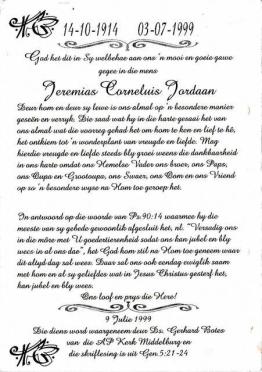 14-10-1914 03-07-1999
God het dit in Sy welbehae aan ons 'n mooi en goeie gawe
gegee in die mens
Jeremias Corneluis Jordaan
Deur hom en deur sy lewe is ons almal op 'n besondere manier
geseën en verryk. Die saad wat hy in die harte gesaai het van
ons almal wat die voorreg gehad het om hom te ken en lief te hê,
het ontkiem tot 'n wonderplant van vreugde en liefde. Mag
hierdie vreugde en liefde steeds bly groei weens die dankbaarheid
in ons harte omdat ons Hemelse Vader ons broer, ons Papa,
ons Oupa en Grootoupa, ons Swaer, ons Oom en ons Vriend
op so 'n besondere wyse na Hom toe geroep het.
In antwoord op die woorde van Ps.90:14 waarmee hy die
meeste van sy gebede gewoonlik afgesluit het, nl. "Versadig ons
in die môre met U goedertierenheid sodat ons kan jubel en bly
wees in al ons dae", het God hom stil na Hom toe geneem waar
dit altyd dag sal wees. Daar sal ons ook eendag ewiglik saam
met hom en al sy geliefdes wat in Jesus Christus gesterf het,
kan jubel en bly wees.
Ons loof en prys die Here!
9 Julie 1999
Die diens word waargeneem deur Ds. Gerhard Botes
van die AP Kerk Middelburg en
die skriflesing is uit Gen.5:21-24